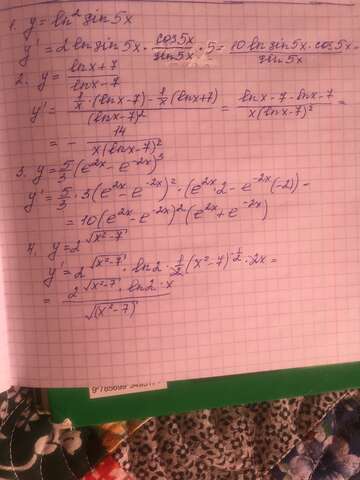 1. y = ln² sin 5x
y' = 2 ln sin 5x · cos5x/sin5x · 5 = 10 ln sin 5x · cos 5x/sin 5x
2. y = (ln x + 7)/(ln x - 7)
y' = (1/x · (ln x - 7) - 1/x (ln x + 7))/(ln x - 7)² = (ln x - 7 - ln x - 7)/(x(ln x - 7)²) =
= - 14/(x(ln x - 7)²
3. y = 5/3 (e^(2x) - e^(-2x))³
y' = 5/3 · 3(e^(2x) - e^(-2x))² · (e^(2x) · 2 - e^(-2x)(-2)) -
= 10(e^(2x) - e^(-2x))² (e^(2x) + e^(-2x))
4. y = 2^√(x² - 7)
y' = 2^√(x² - 7) · ln 2 · 1/2 (x² - 7)^(-1/2) · 2x =
= (2^√(x² - 7) · ln 2 · x)/√(x² - 7)